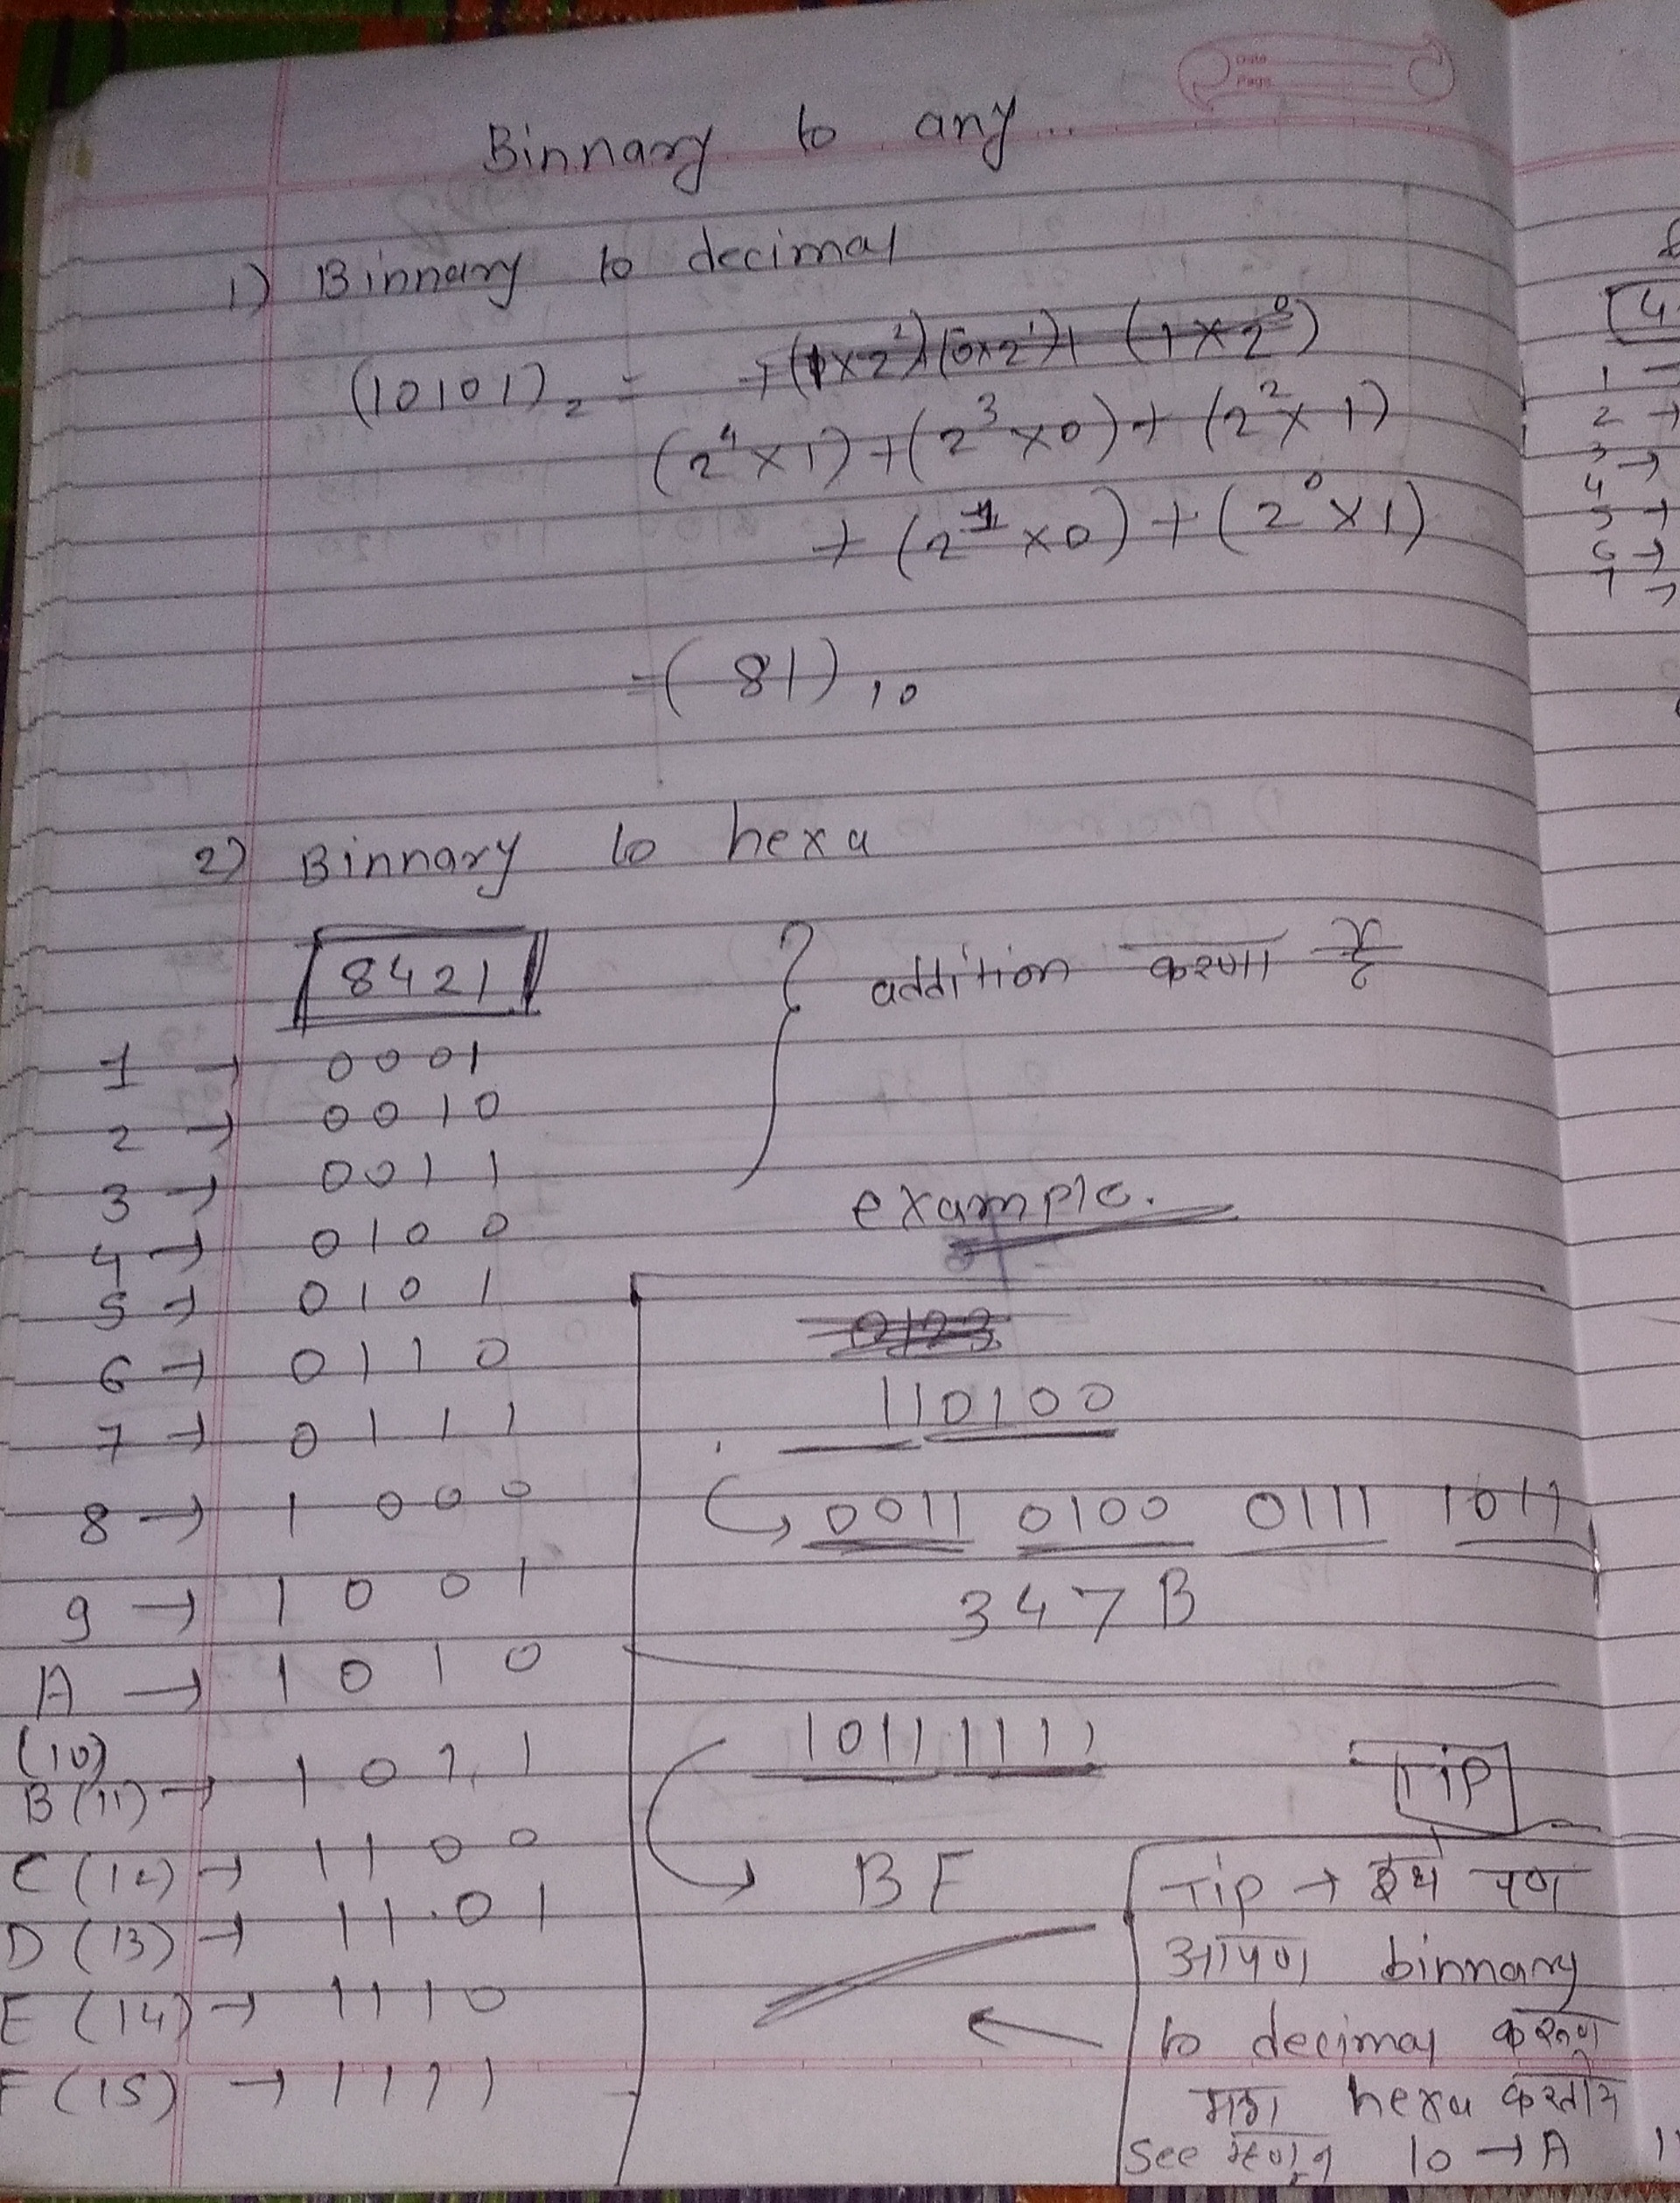 Date
Page
Binnary to any...
1) Binnary to decimal
(10101)₂ =
(2⁴ × 1) + (2³ × 0) + (2² × 1)
+ (2¹ × 0) + (2⁰ × 1)
= (81)₁₀
2) Binnary to hexa
8421
addition करणा
1 → 0001
2 → 0010
3 → 0011
4 → 0100
5 → 0101
6 → 0110
7 → 0111
8 → 1000
9 → 1001
A → 1010
(10)
B (11) → 1011
C (12) → 1100
D (13) → 1101
E (14) → 1110
F (15) → 1111
example.
110100
0011 0100 0111 1011
347B
10111111
BF
Tip
Tip → इथे पण
आपण binnary
to decimal करून
मग hexa करतोय
See म्हणून 10 → A
4
1
2 →
3 →
4
5 →
6 →
7 →